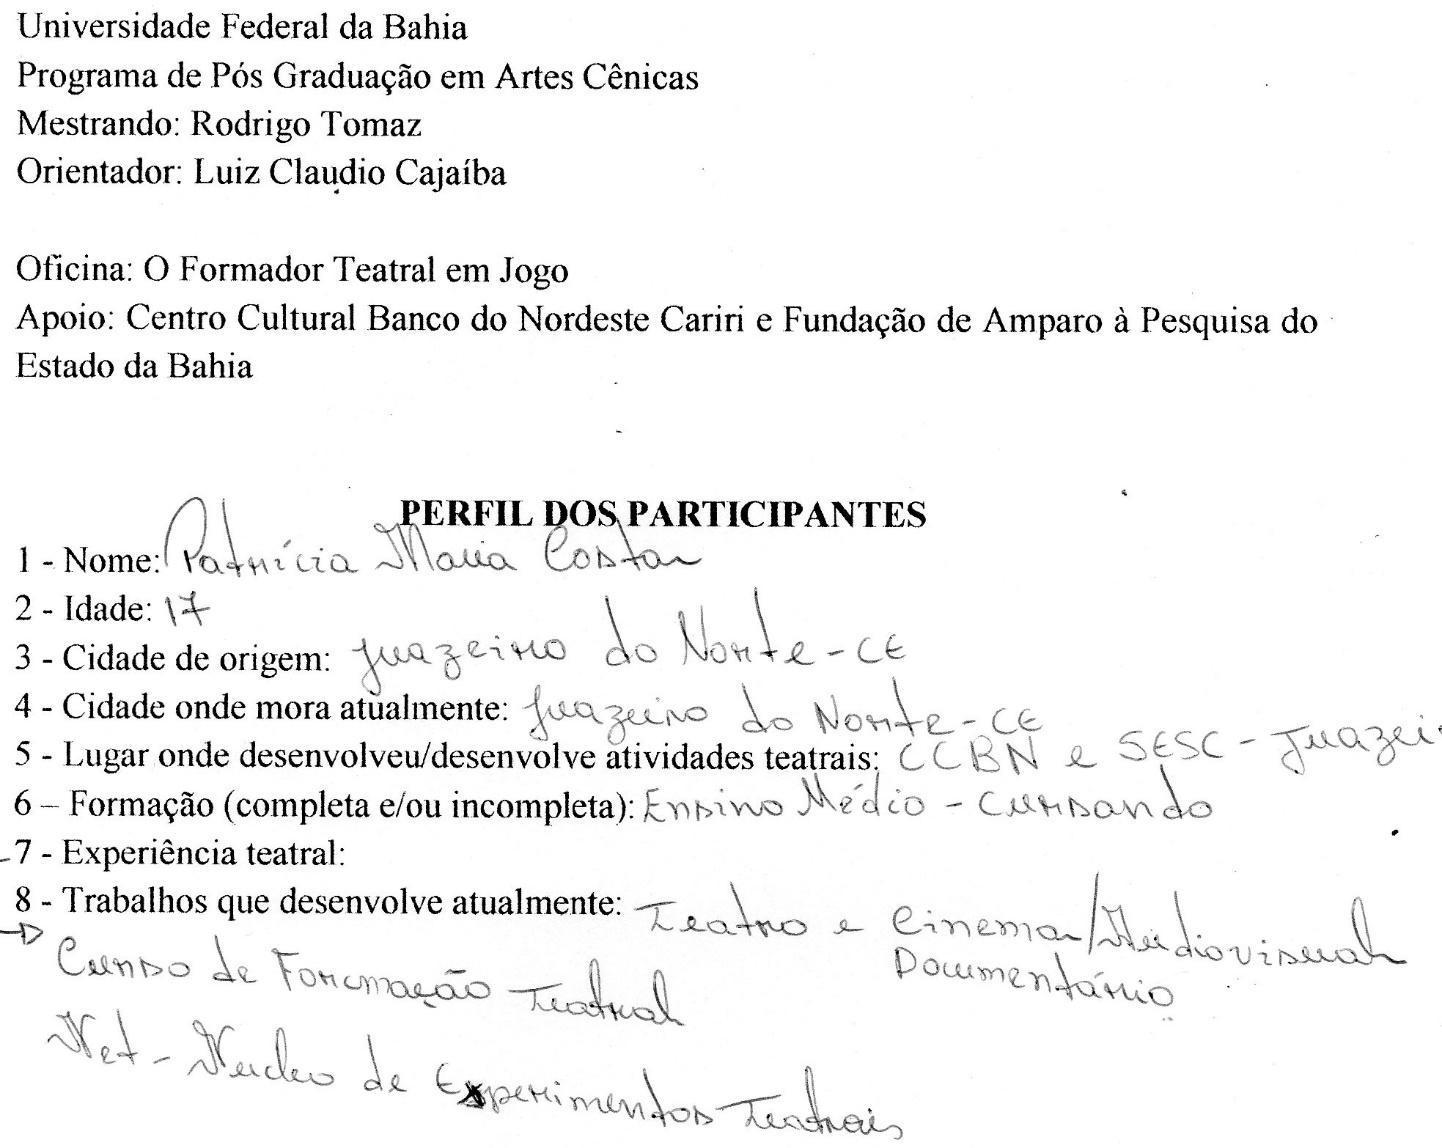 Universidade Federal da Bahia
Programa de Pós Graduação em Artes Cênicas
Mestrando: Rodrigo Tomaz
Orientador: Luiz Claudio Cajaíba
Oficina: O Formador Teatral em Jogo
Apoio: Centro Cultural Banco do Nordeste Cariri e Fundação de Amparo à Pesquisa do
Estado da Bahia
PERFIL DOS PARTICIPANTES
1 - Nome: Patrícia Maria Costa
2 - Idade: 17
3 - Cidade de origem: Juazeiro do Norte-CE
4 - Cidade onde mora atualmente: Juazeiro do Norte-CE
5 - Lugar onde desenvolveu/desenvolve atividades teatrais: CCBN e SESC - Juazei
6 – Formação (completa e/ou incompleta): Ensino Médio - Cursando
-7 - Experiência teatral:
8 - Trabalhos que desenvolve atualmente: Teatro e Cinema/Audiovisual
Documentário
→ Curso de Formação Teatral
Net - Núcleo de Experimentos Teatrais